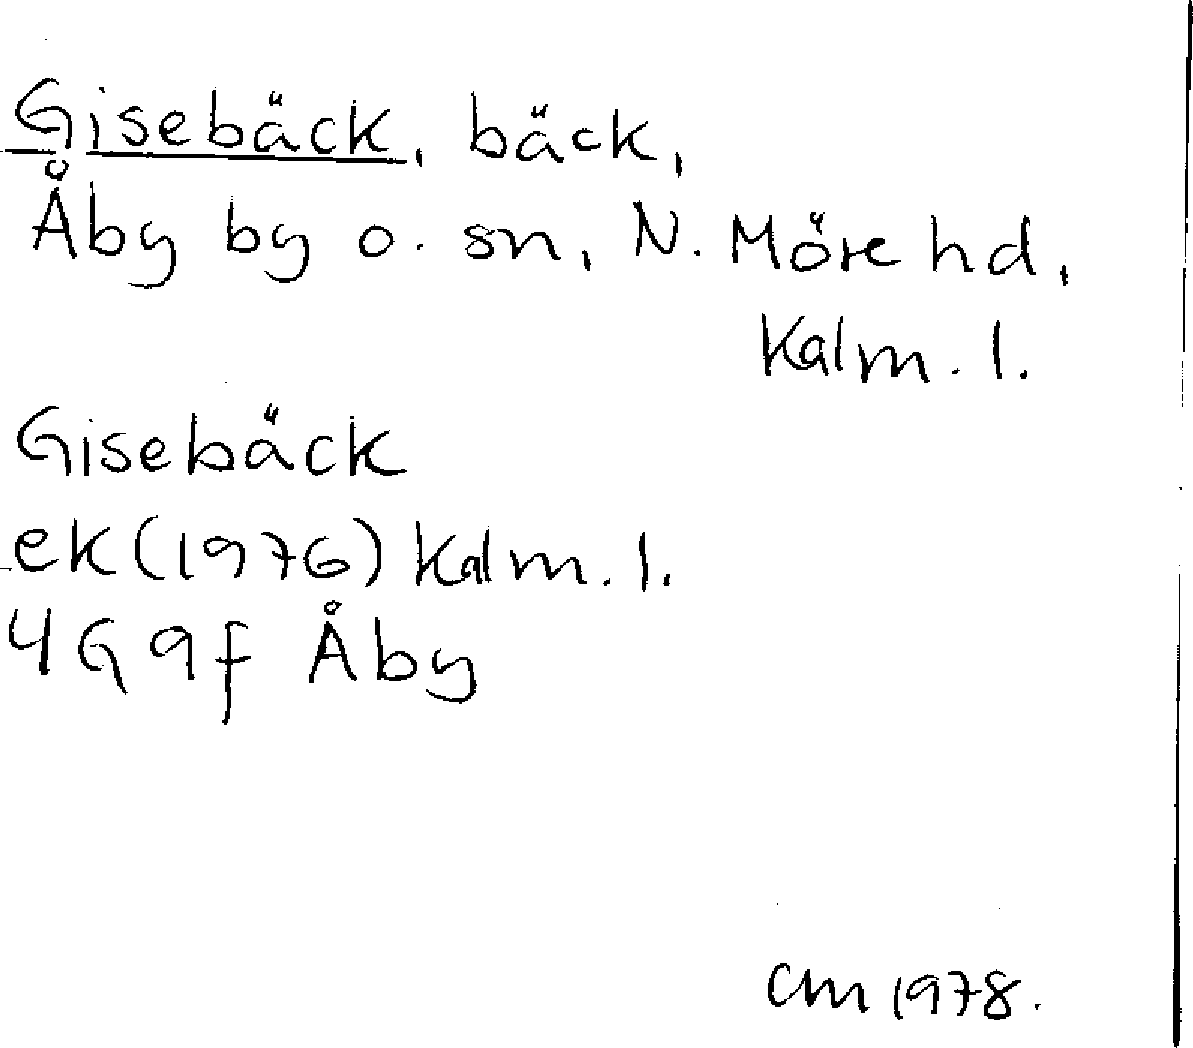 Gisebäck, bäck,
Åby by o. sn, N. Möre hd,
Kalm. l.
Gisebäck
ek (1976) Kalm. l.
4G 9f Åby
CM 1978.